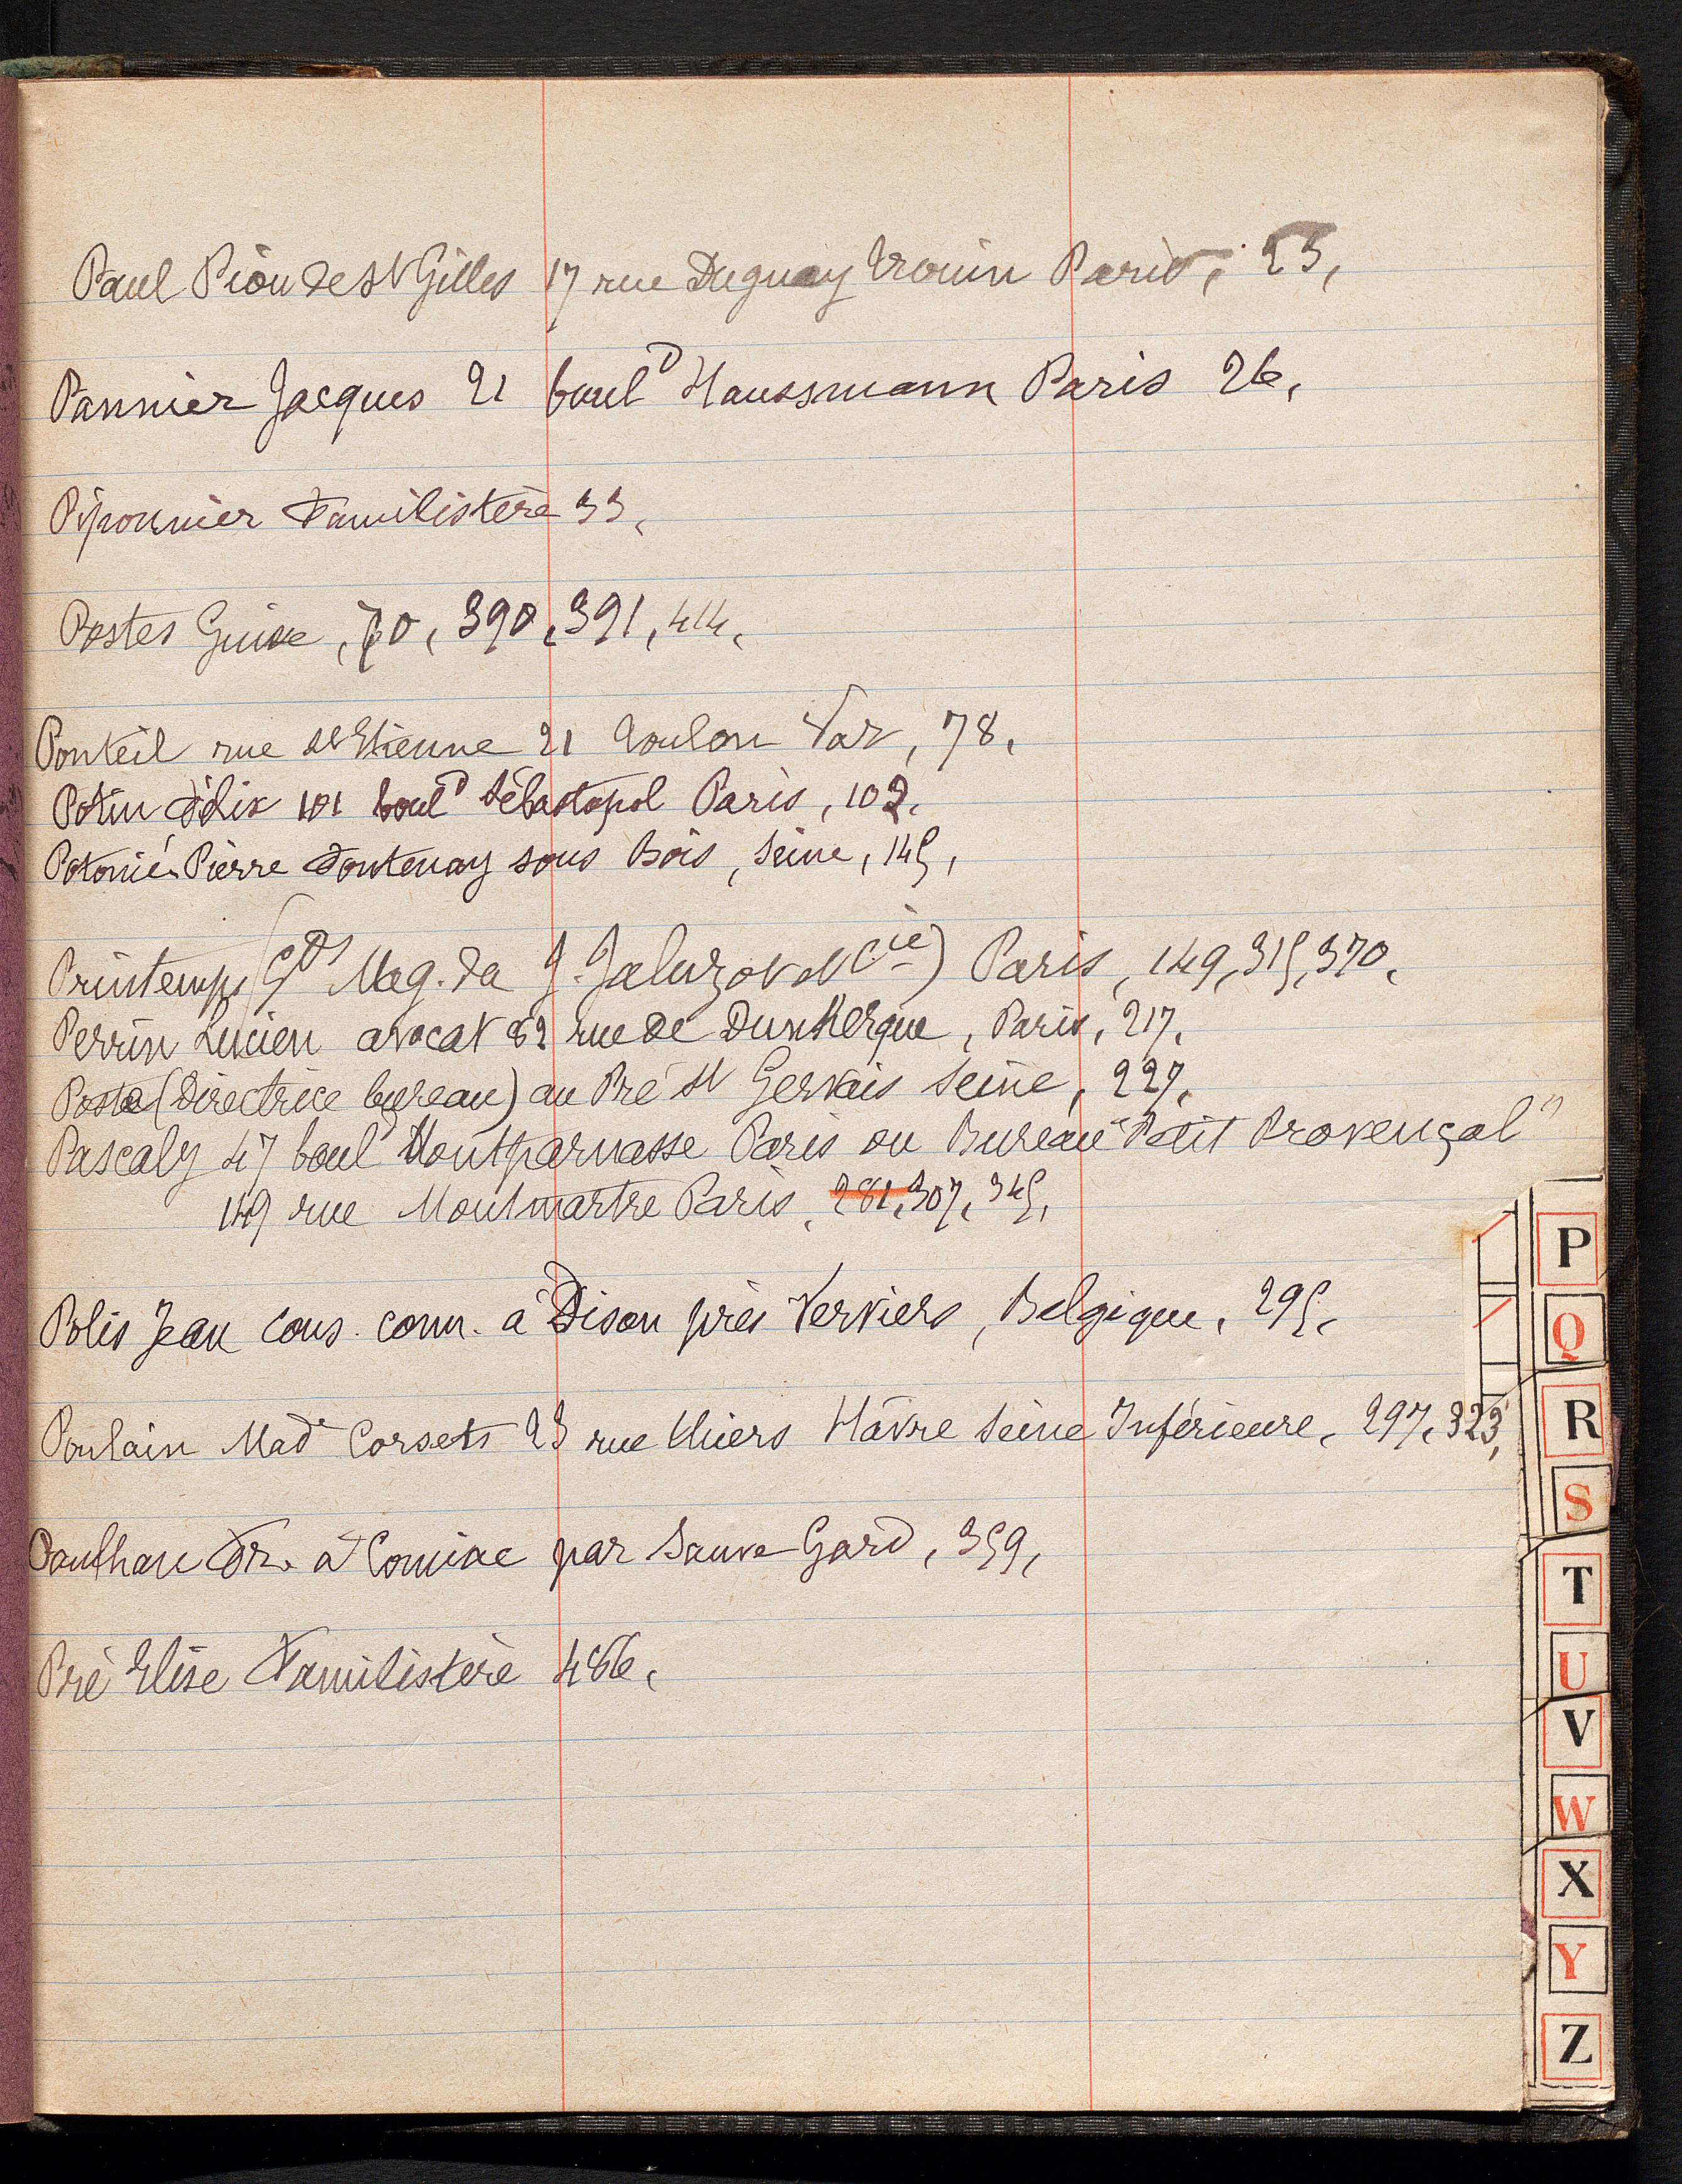 Paul Piou de St Gilles 17 rue Duguay Trouin Paris, 23,
Pannier Jacques 21 boul<sup>d</sup> Haussmann Paris 26,
Piponnier Familistère 33,
Postes Guise, 70, 390, 391, 414,
Ponteil rue St Etienne 21 Toulon Var, 78,
Potin Félix 101 boul<sup>d</sup> Sébastopol Paris, 102,
Potonié Pierre Fontenay sous Bois, Seine, 145,
Printemps (G<sup>ds</sup> Mag. da J. Jaluzot et C<sup>ie</sup>) Paris, 149, 315, 370,
Perrin Lucien avocat 82 rue de Dunkerque, Paris, 217,
Poste (Directrice bureau) au Pré St Gervais Seine, 227,
Pascaly 47 boul<sup>d</sup> Montparnasse Paris ou Bureau "Petit Provençal"
149 rue Montmartre Paris, 281, 307, 345,
Polis Jean cons. comm. à Dison près Verviers, Belgique, 295,
Poulain Mad<sup>e</sup> Corsets 23 rue Thiers Hâvre Seine Inférieure, 297, 323,
Paulhan Fr. à Comiac par Sauve Gard, 359,
Pré Elise Familistère 486,
P
Q
R
S
T
U
V
W
X
Y
Z